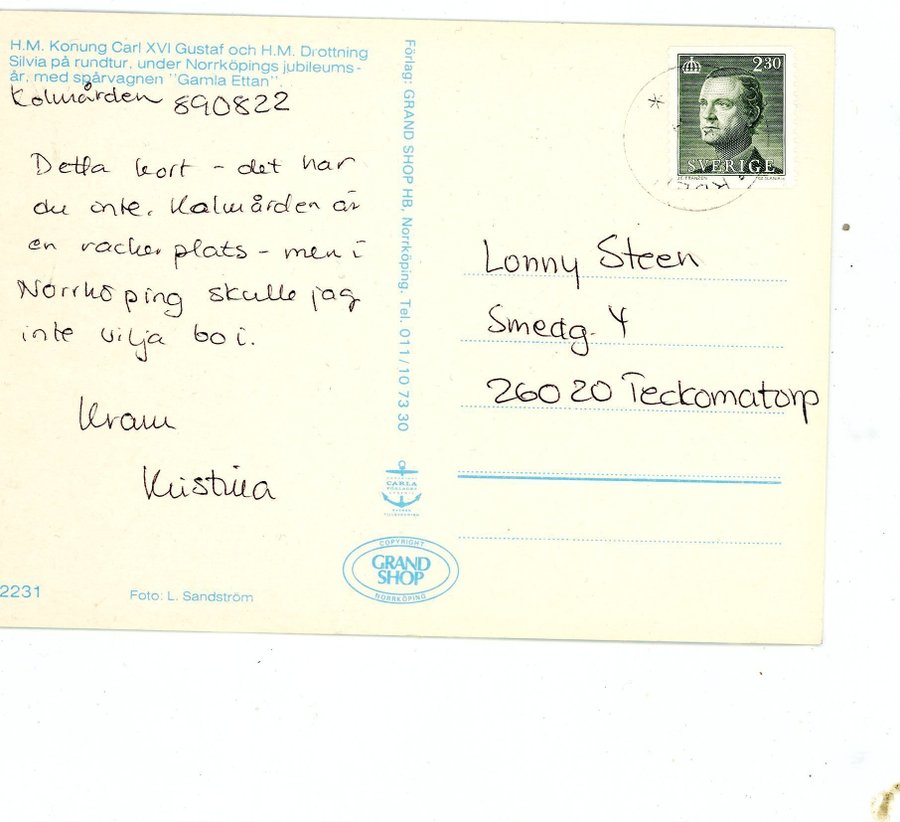 H.M. Konung Carl XVI Gustaf och H.M. Drottning
Silvia på rundtur, under Norrköpings jubileums-
år, med spårvagnen "Gamla Ettan"
Kolmården 890822
Detta kort - det har
du inte. Kolmården är
en vacker plats - men i
Norrköping skulle jag
inte vilja bo i.
Kram
Kristina
2231
Foto: L. Sandström
Förlag: GRAND SHOP HB, Norrköping. Tel. 011/10 73 30
CARLA
COPYRIGHT
GRAND
SHOP
NORRKÖPING
2.30
SVERIGE
Lonny Steen
Smedg. 4
260 20 Teckomatorp